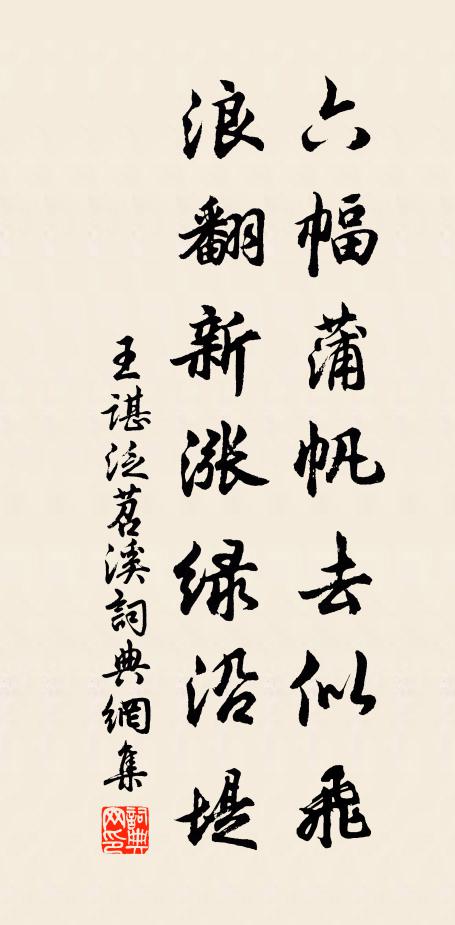 六幅蒲帆去似飛
浪翻新漲綠沿堤
王諶泛苕溪詞典網集
詞典網印